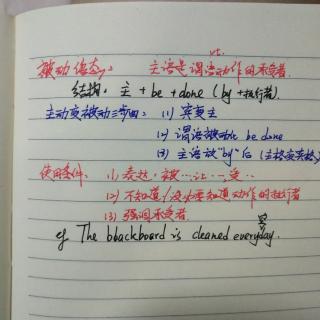 vt.
被动语态: 主语是谓语动作的承受者.
结构: 主 + be + done (by +执行者)
主动变被动三步曲: (1) 宾变主
(2) 谓语被动化 be done
(3) 主语放"by"后 (主格变宾格)
使用条件: (1) 表达:被…让…受…
(2) 不知道/没必要知道动作的执行者
(3) 强调承受者.
eg The bbackboard is cleaned everyday.